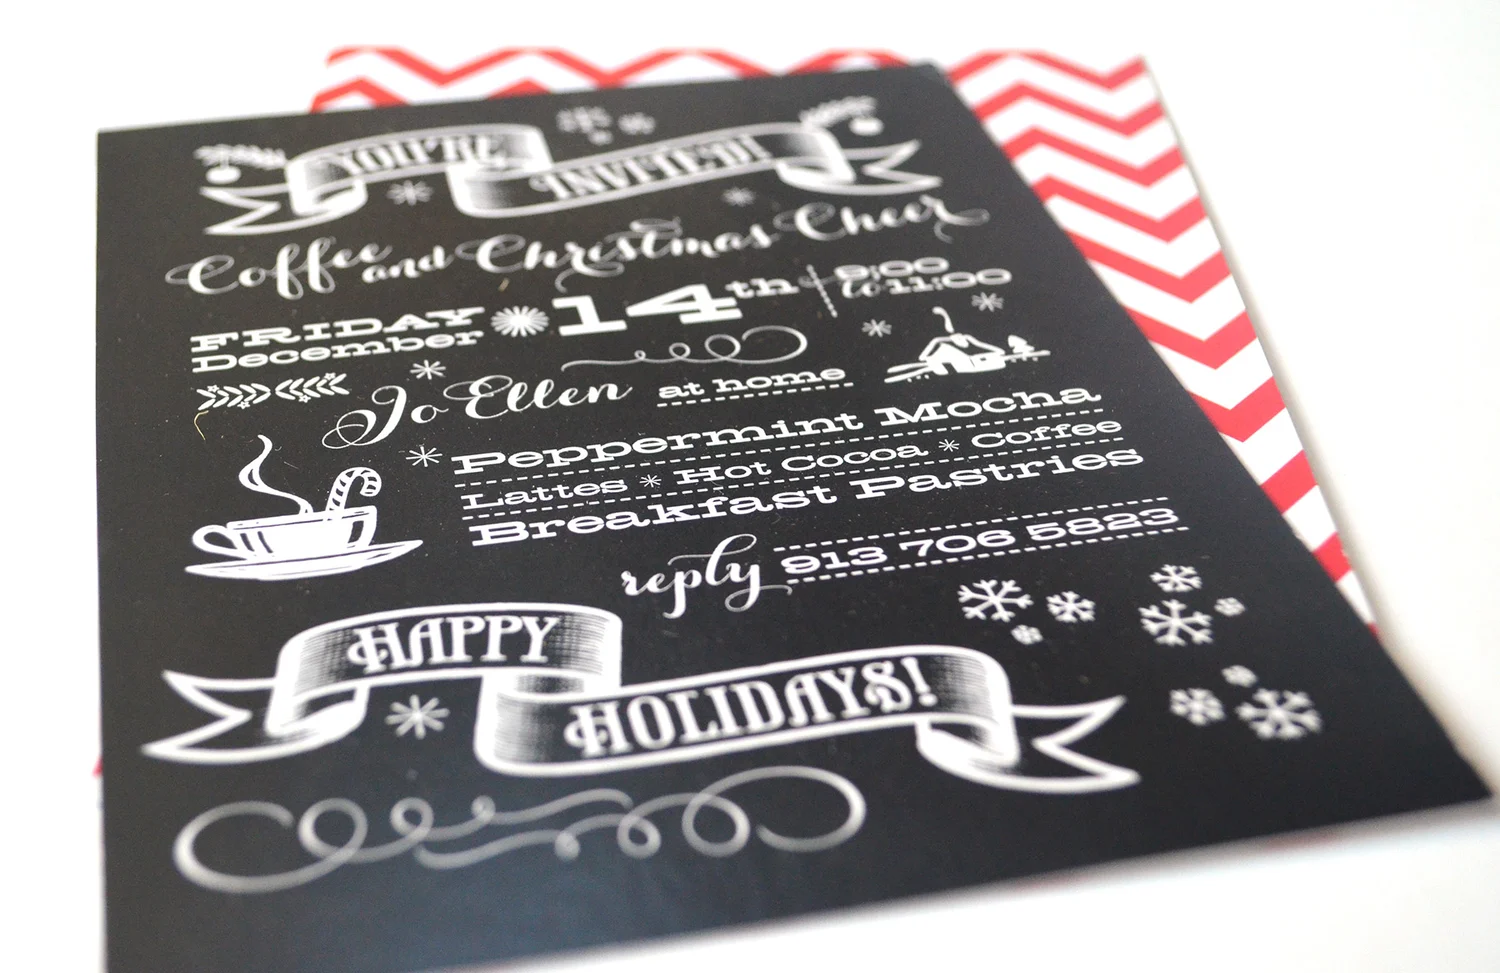 YOU'RE INVITED!
Coffee and Christmas Cheer
FRIDAY December 14th 9:00 to 11:00
Jo Ellen at home
Peppermint Mocha
Lattes * Hot Cocoa * Coffee
Breakfast Pastries
reply 913 706 5823
HAPPY HOLIDAYS!